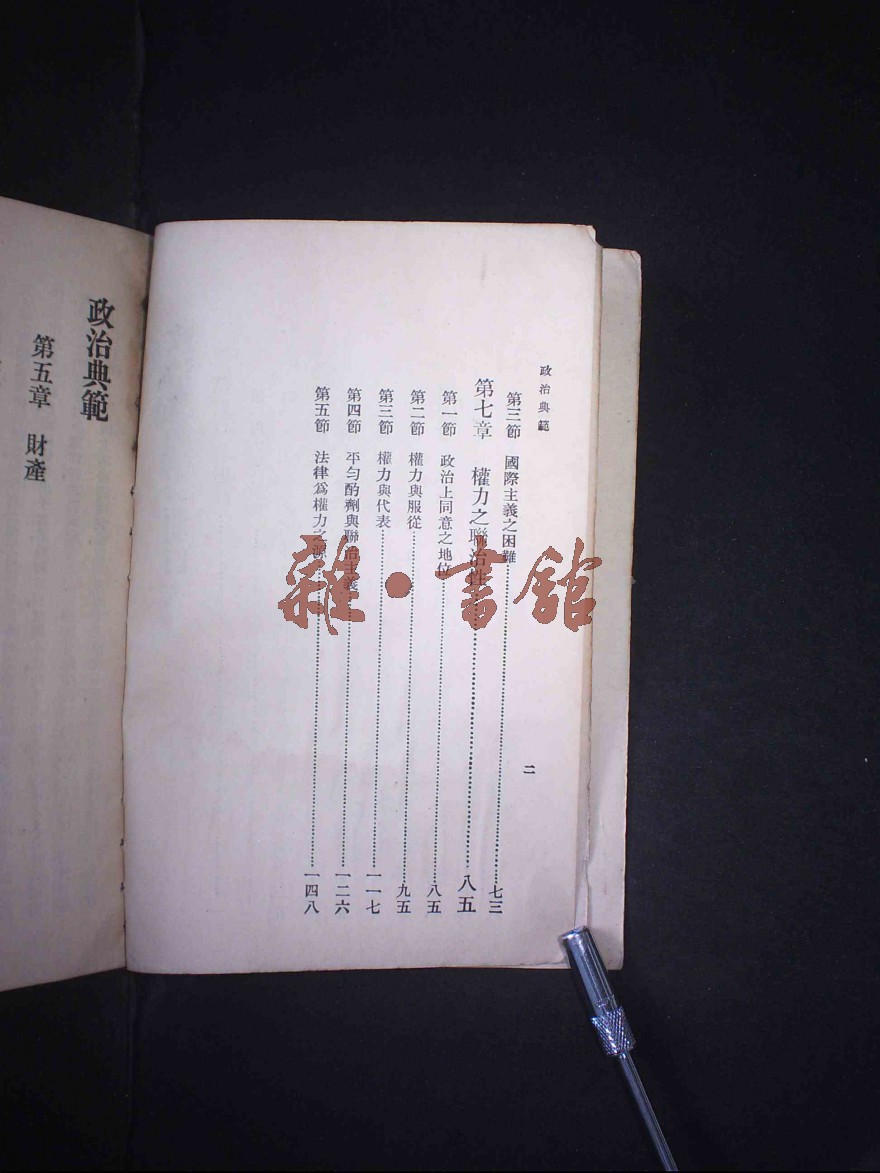 政治典範
二
第三節 國際主義之困難……七三
第七章 權力之聯治性……八五
第一節 政治上同意之地位……八五
第二節 權力與服從……九五
第三節 權力與代表……一一七
第四節 平勻酌劑與聯治主義……一二六
第五節 法律爲權力之源……一四八
政治典範
第五章 財產
雜·書館